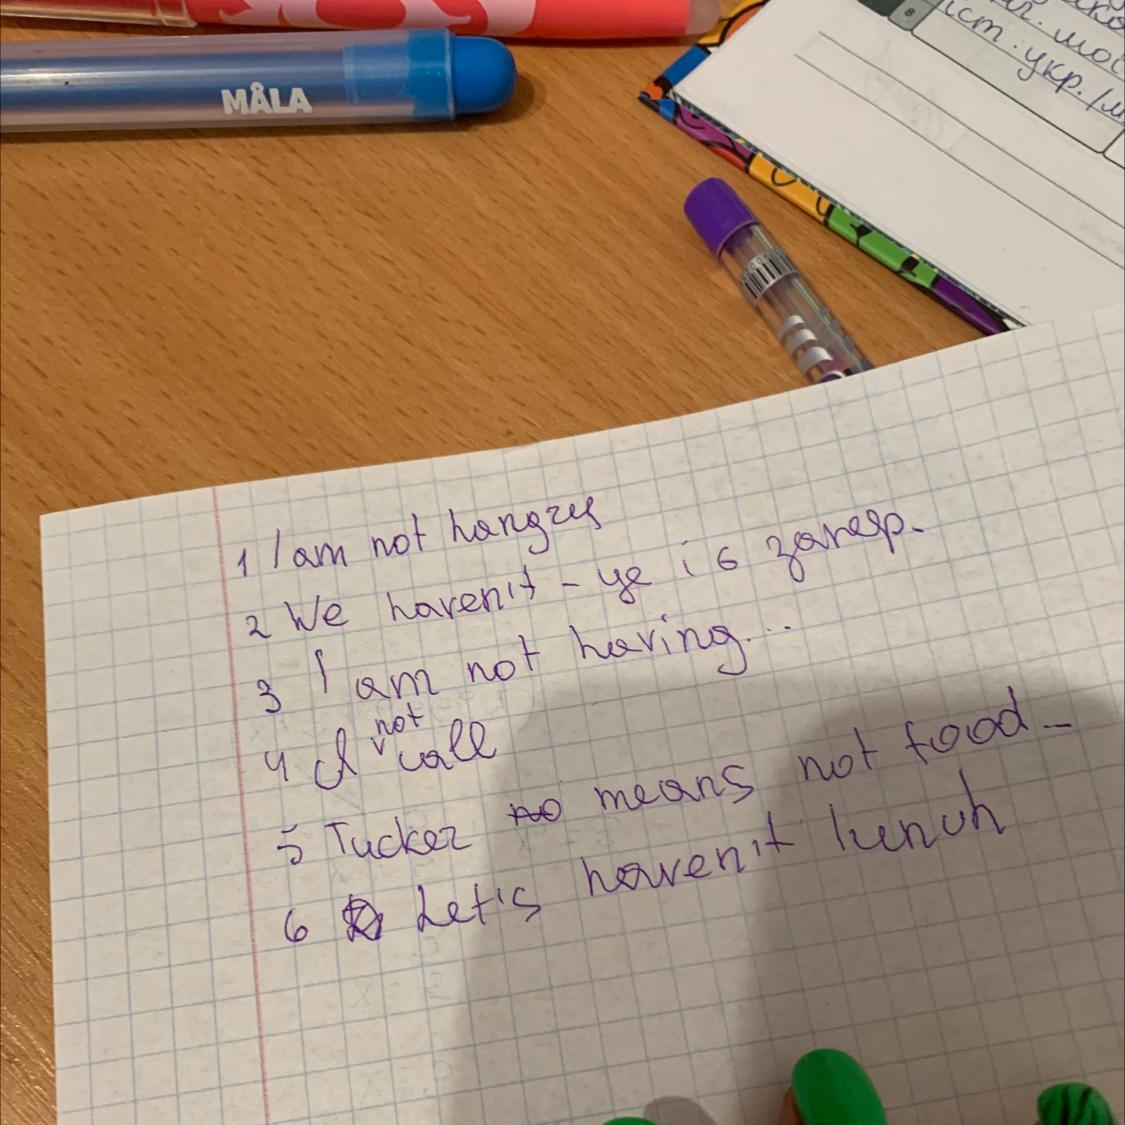 MÅLA
8
іст. укр. /м
1 I am not hangry
2 We haven't - це і є запер.
3 I am not having...
4 I not call
5 Tucker no means not food -
6 Let's haven't lunch